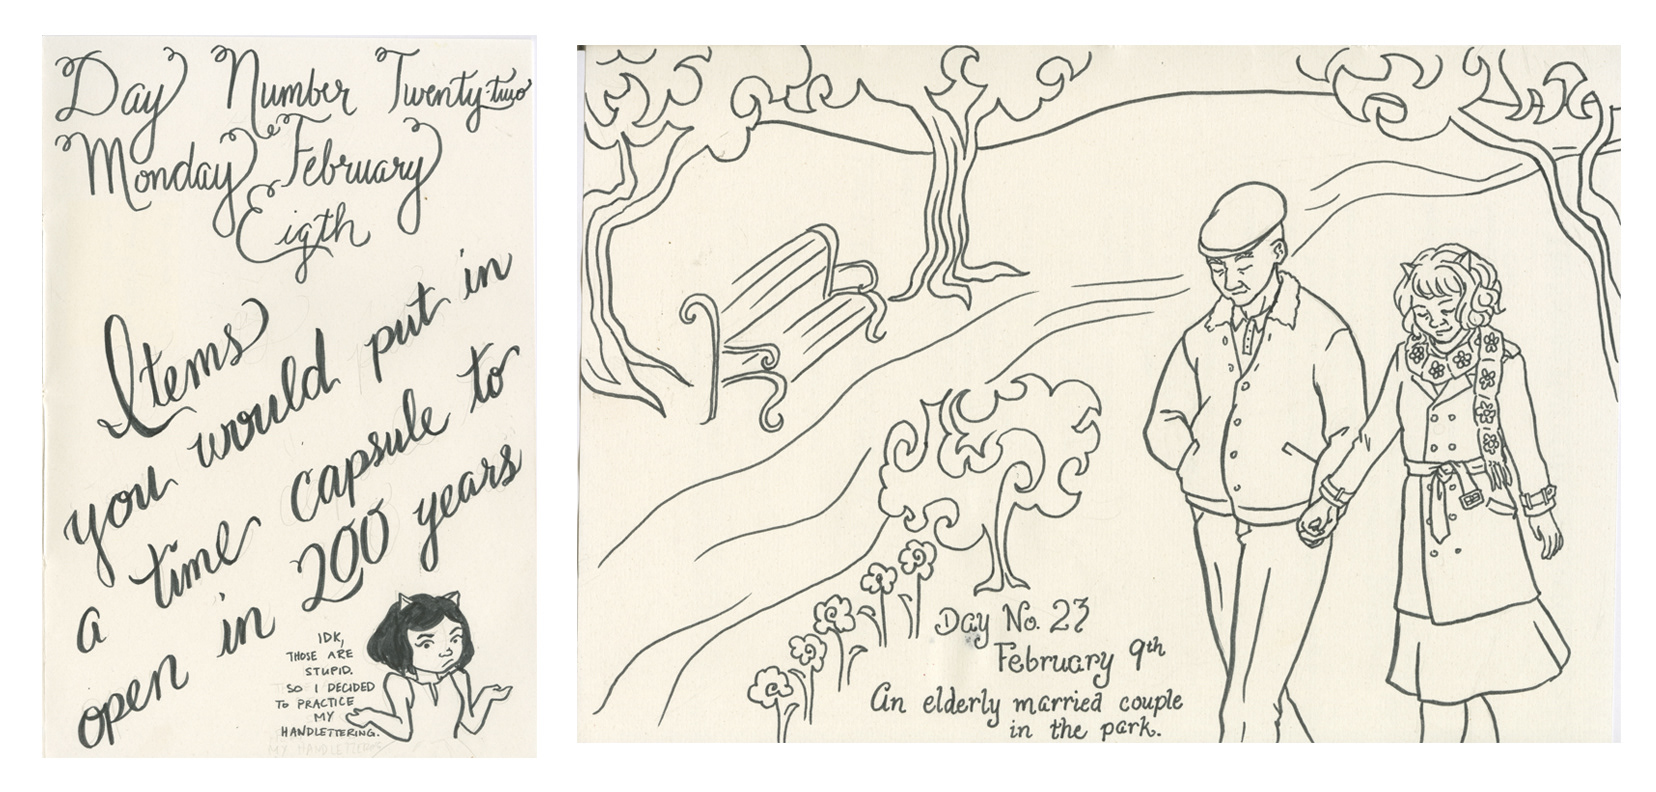 Day Number Twenty-two
Monday February
Eigth
Items
you would put in
a time capsule to
open in 200 years
IDK,
THOSE ARE
STUPID.
SO I DECIDED
TO PRACTICE
MY
HANDLETTERING.
Day No. 23
February 9th
An elderly married couple
in the park.